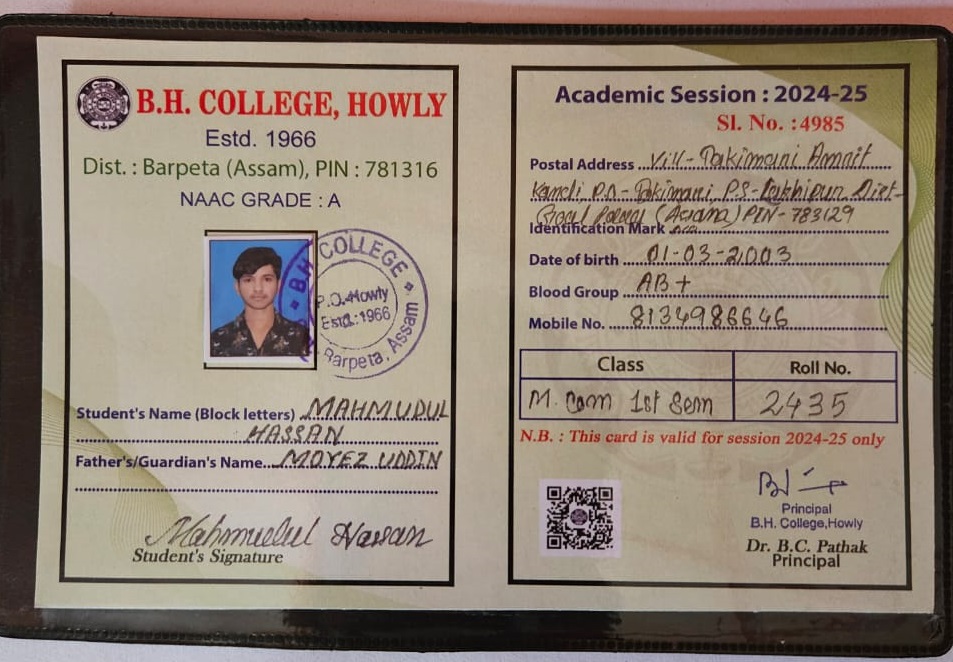 B.H. COLLEGE, HOWLY
Estd. 1966
Dist. : Barpeta (Assam), PIN : 781316
NAAC GRADE : A
B.H. COLLEGE
P.O.-Howly
Estd.:1966
Barpeta, Assam
Student's Name (Block letters) MAHMUDUL
HASSAN
Father's/Guardian's Name MOYEZ UDDIN
Mahmudul Hassan
Student's Signature
Academic Session : 2024-25
Sl. No. : 4985
Postal Address Vill- Takimani Amnit
Kandi, P.O- Takimari, P.S- Lakhipur Dist-
(Assam) PIN- 783129
Identification Mark n/a
Date of birth 01-03-2003
Blood Group AB+
Mobile No. 8134986646
Class Roll No.
M. Com 1st Sem 2435
N.B. : This card is valid for session 2024-25 only
Principal
B.H. College,Howly
Dr. B.C. Pathak
Principal